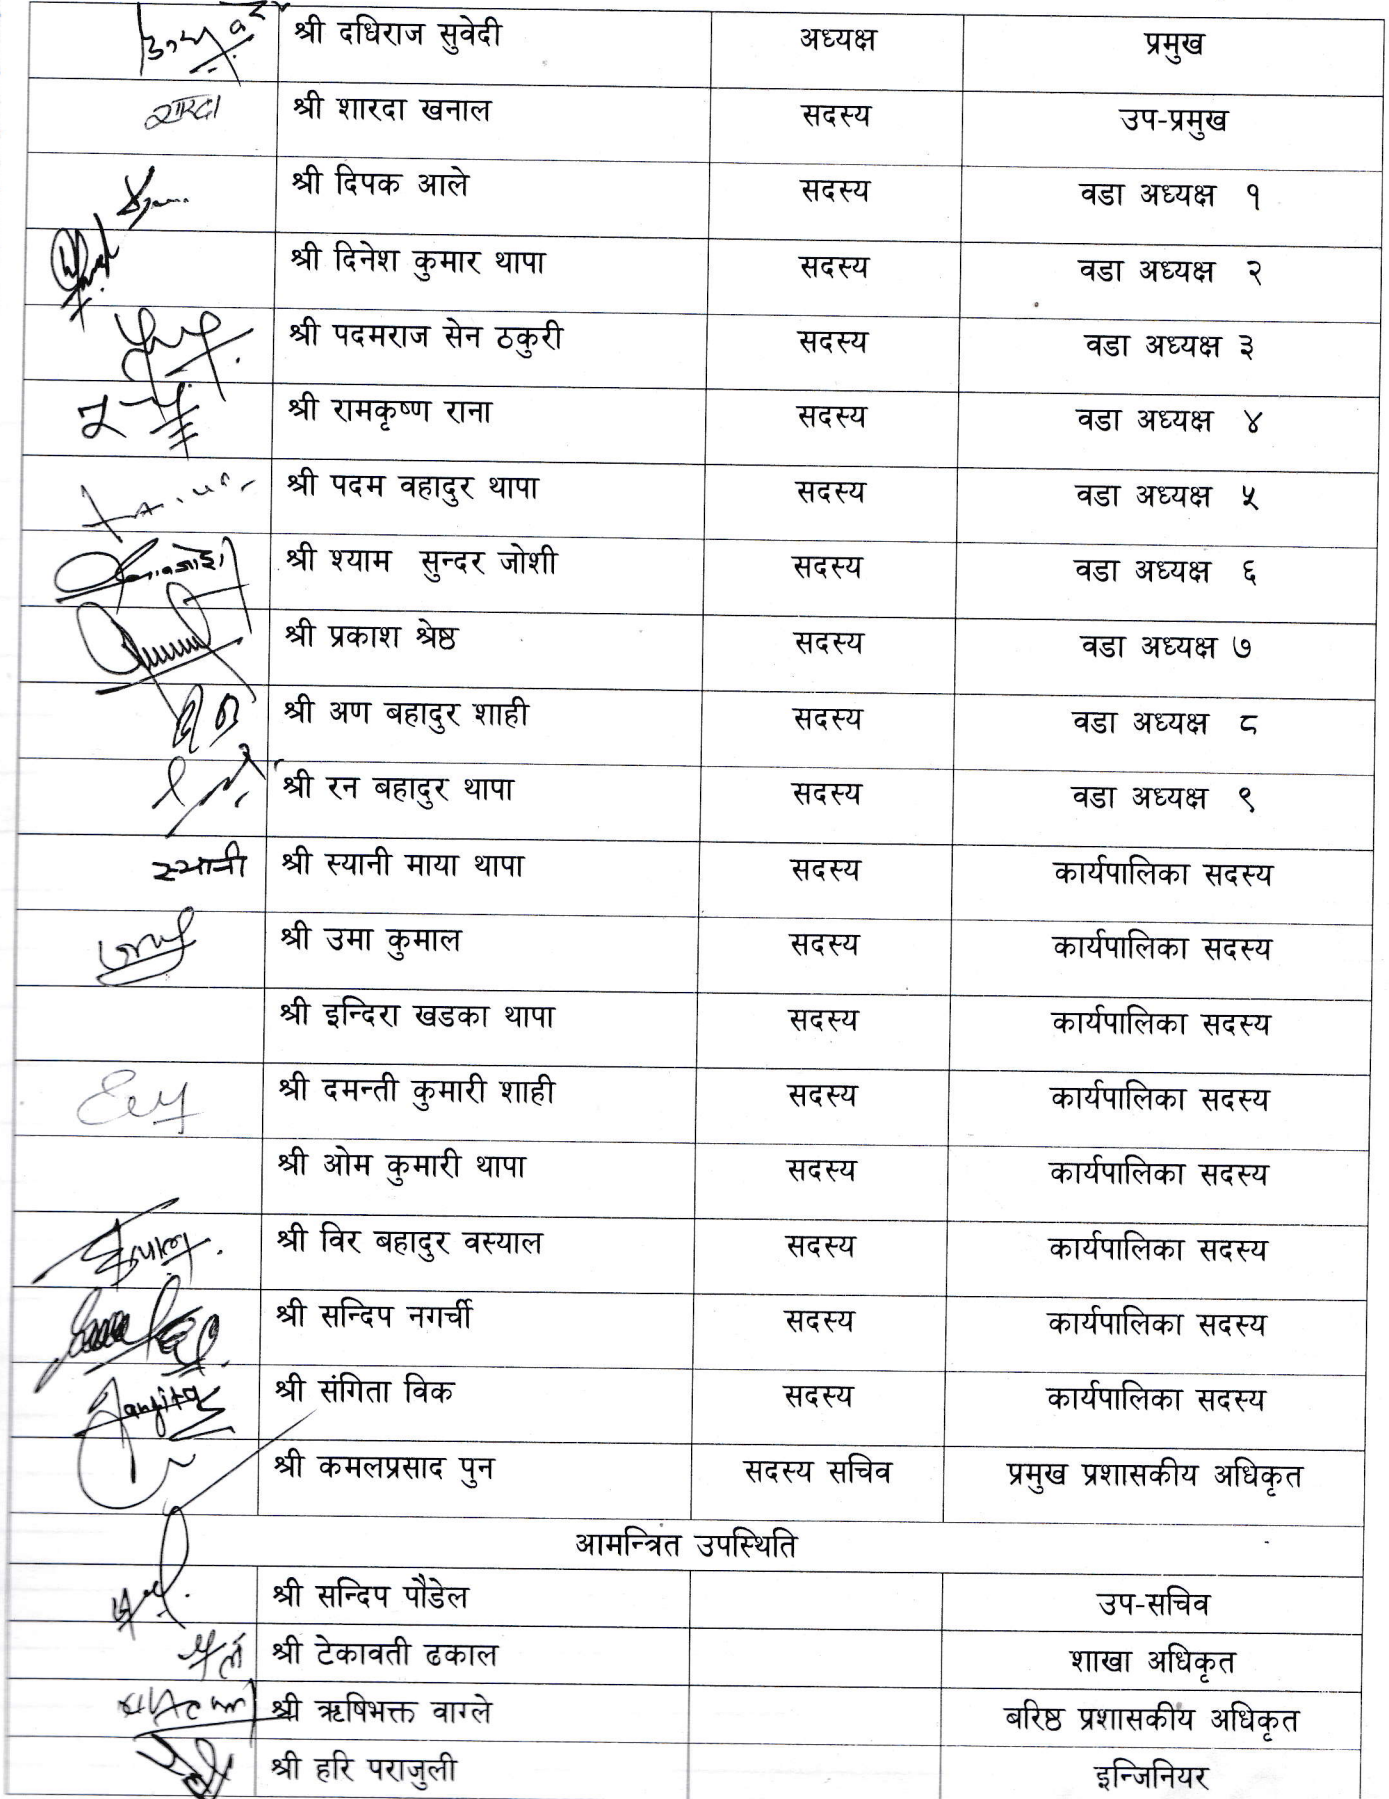 श्री दधिराज सुवेदी अध्यक्ष प्रमुख
शारदा श्री शारदा खनाल सदस्य उप-प्रमुख
श्री दिपक आले सदस्य वडा अध्यक्ष १
श्री दिनेश कुमार थापा सदस्य वडा अध्यक्ष २
श्री पदमराज सेन ठकुरी सदस्य वडा अध्यक्ष ३
श्री रामकृष्ण राना सदस्य वडा अध्यक्ष ४
श्री पदम वहादुर थापा सदस्य वडा अध्यक्ष ५
श्री श्याम सुन्दर जोशी सदस्य वडा अध्यक्ष ६
श्री प्रकाश श्रेष्ठ सदस्य वडा अध्यक्ष ७
श्री अण बहादुर शाही सदस्य वडा अध्यक्ष ८
श्री रन बहादुर थापा सदस्य वडा अध्यक्ष ९
स्यानी श्री स्यानी माया थापा सदस्य कार्यपालिका सदस्य
श्री उमा कुमाल सदस्य कार्यपालिका सदस्य
श्री इन्दिरा खडका थापा सदस्य कार्यपालिका सदस्य
श्री दमन्ती कुमारी शाही सदस्य कार्यपालिका सदस्य
श्री ओम कुमारी थापा सदस्य कार्यपालिका सदस्य
श्री विर बहादुर वस्याल सदस्य कार्यपालिका सदस्य
श्री सन्दिप नगर्ची सदस्य कार्यपालिका सदस्य
श्री संगिता विक सदस्य कार्यपालिका सदस्य
श्री कमलप्रसाद पुन सदस्य सचिव प्रमुख प्रशासकीय अधिकृत
आमन्त्रित उपस्थिति
श्री सन्दिप पौडेल उप-सचिव
श्री टेकावती ढकाल शाखा अधिकृत
श्री ऋषिभक्त वाग्ले बरिष्ठ प्रशासकीय अधिकृत
श्री हरि पराजुली इन्जिनियर